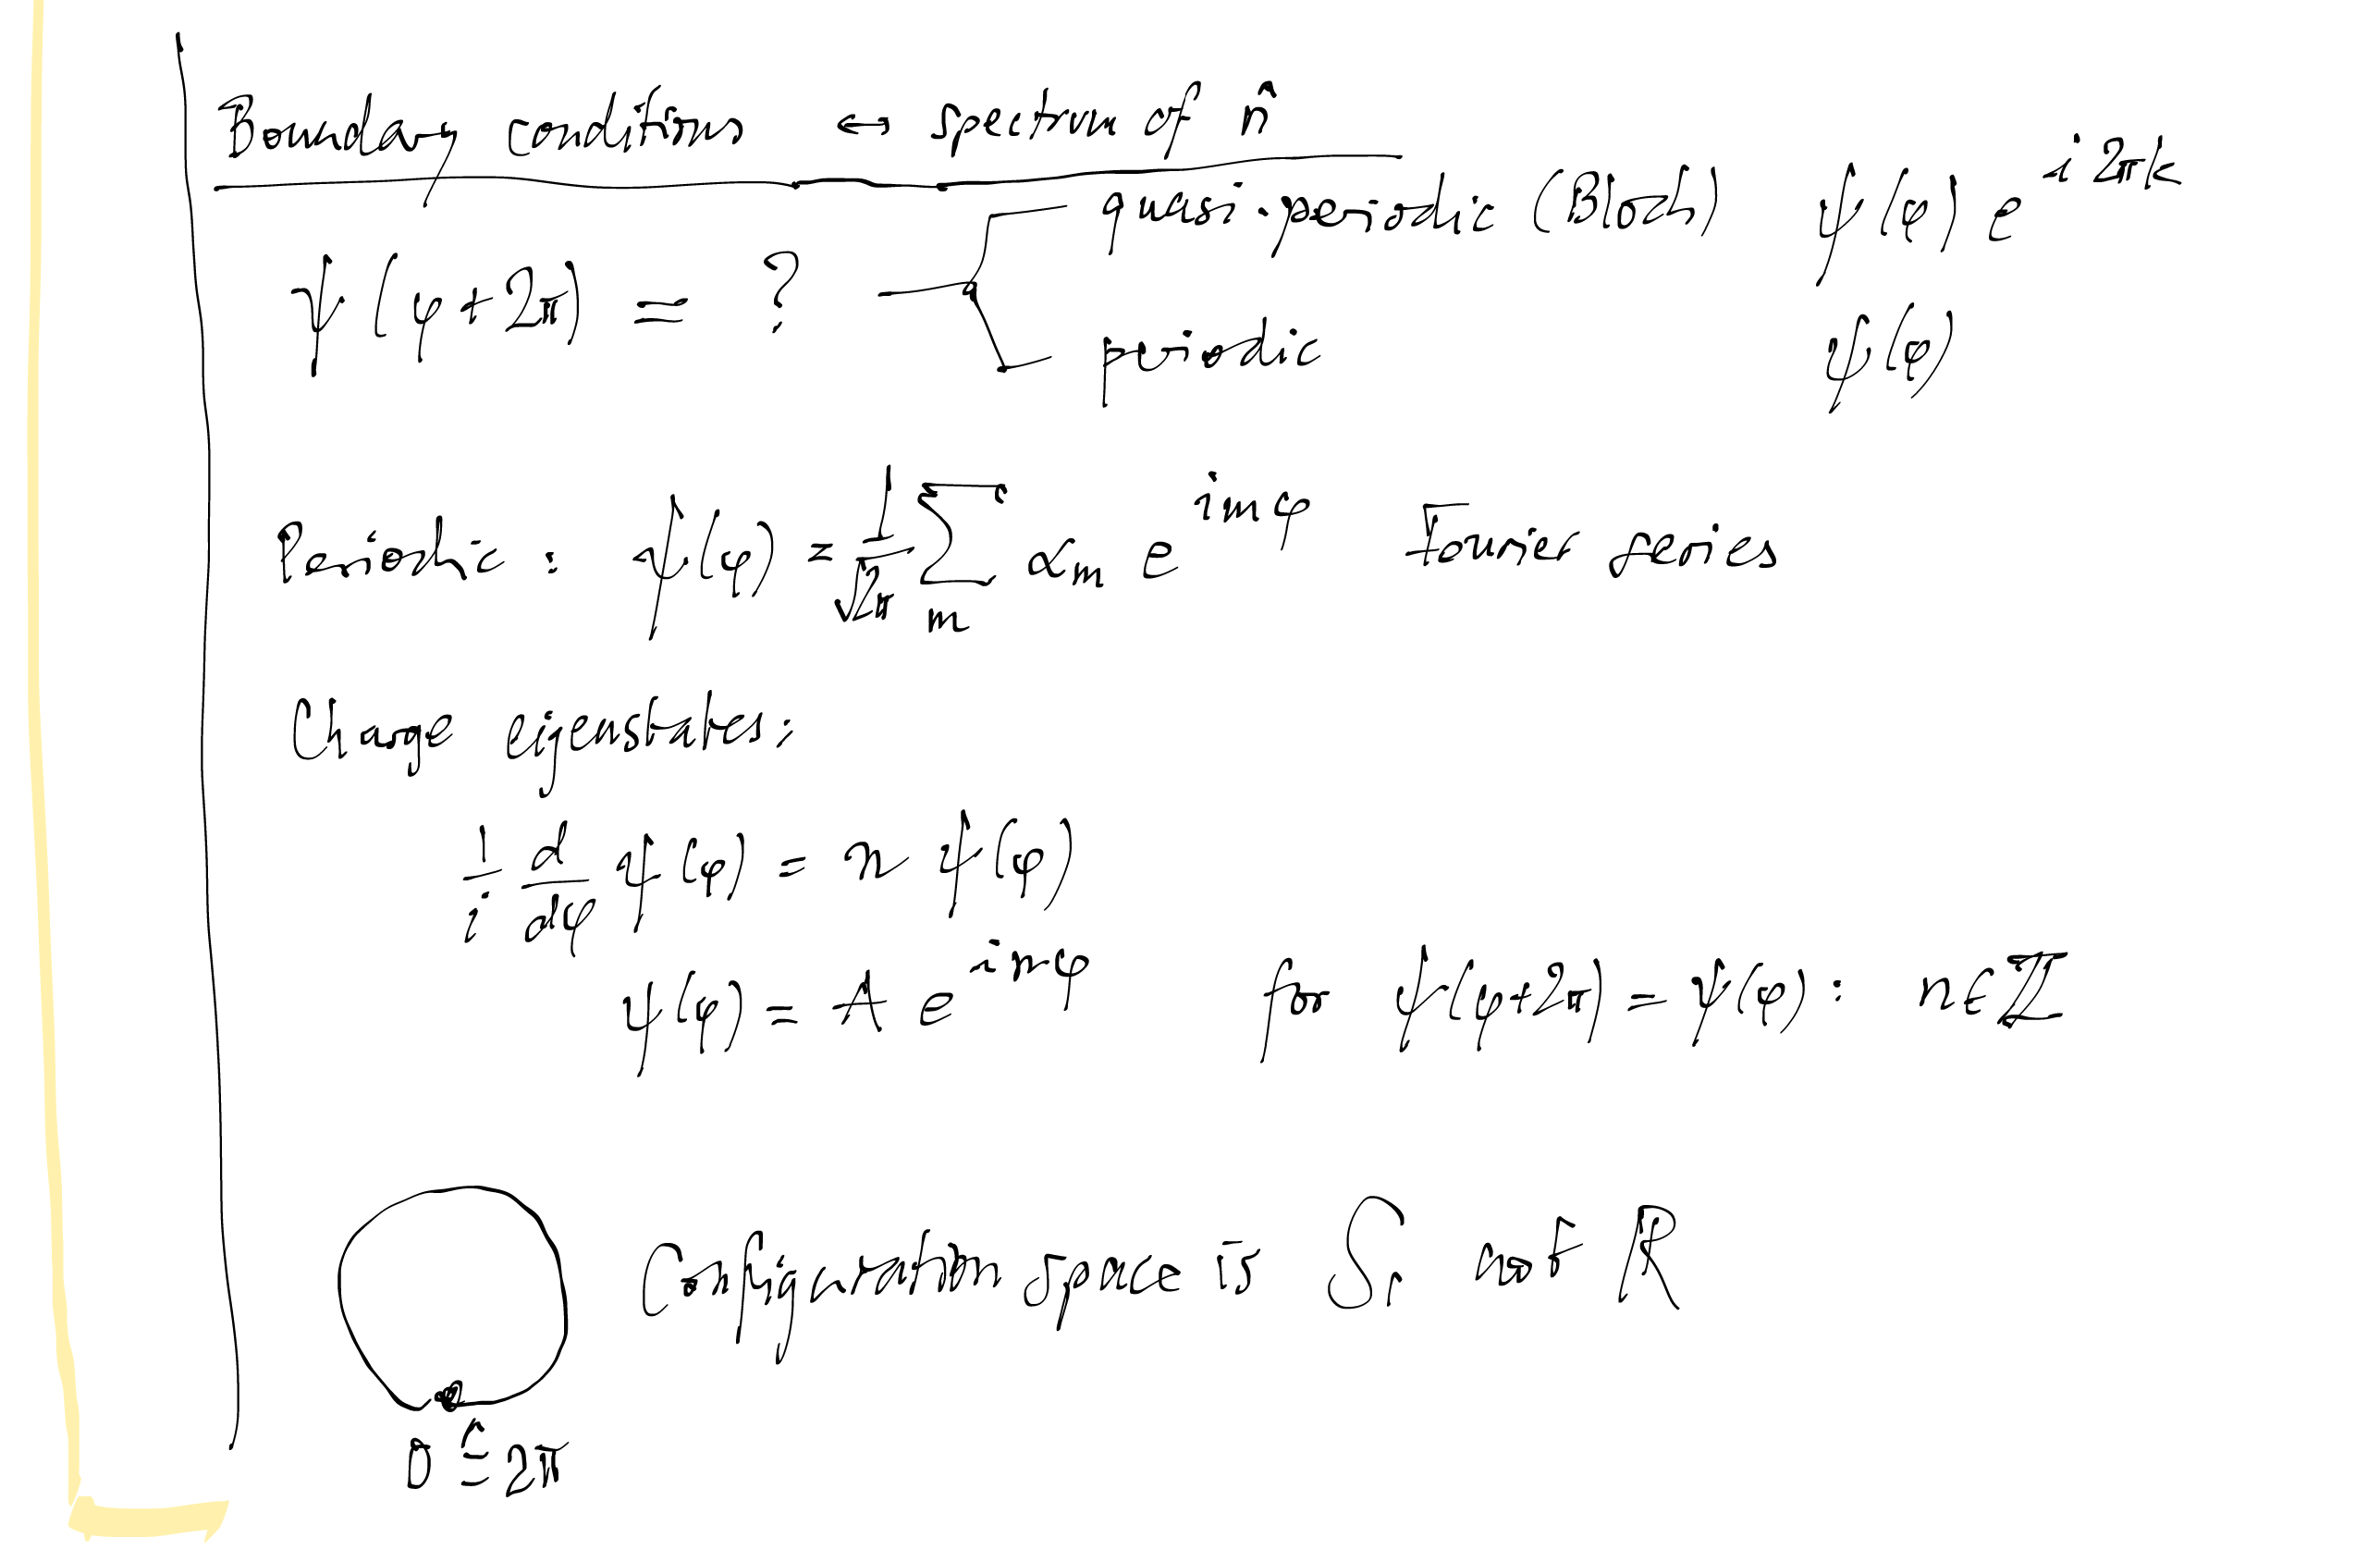 Boundary conditions ↔ spectrum of n̂
ψ(φ+2π) = ? quasi-periodic (Bloch) ψ(φ) e^{i2πk}
periodic ψ(φ)
Periodic: ψ(φ) = 1/√2π ∑_m α_m e^{imφ} Fourier series
Charge eigenstates:
1/i d/dφ ψ(φ) = n ψ(φ)
ψ(φ) = A e^{inφ} for ψ(φ+2π) = ψ(φ): n∈ℤ
Configuration space is S₁ not ℝ
0 ≙ 2π